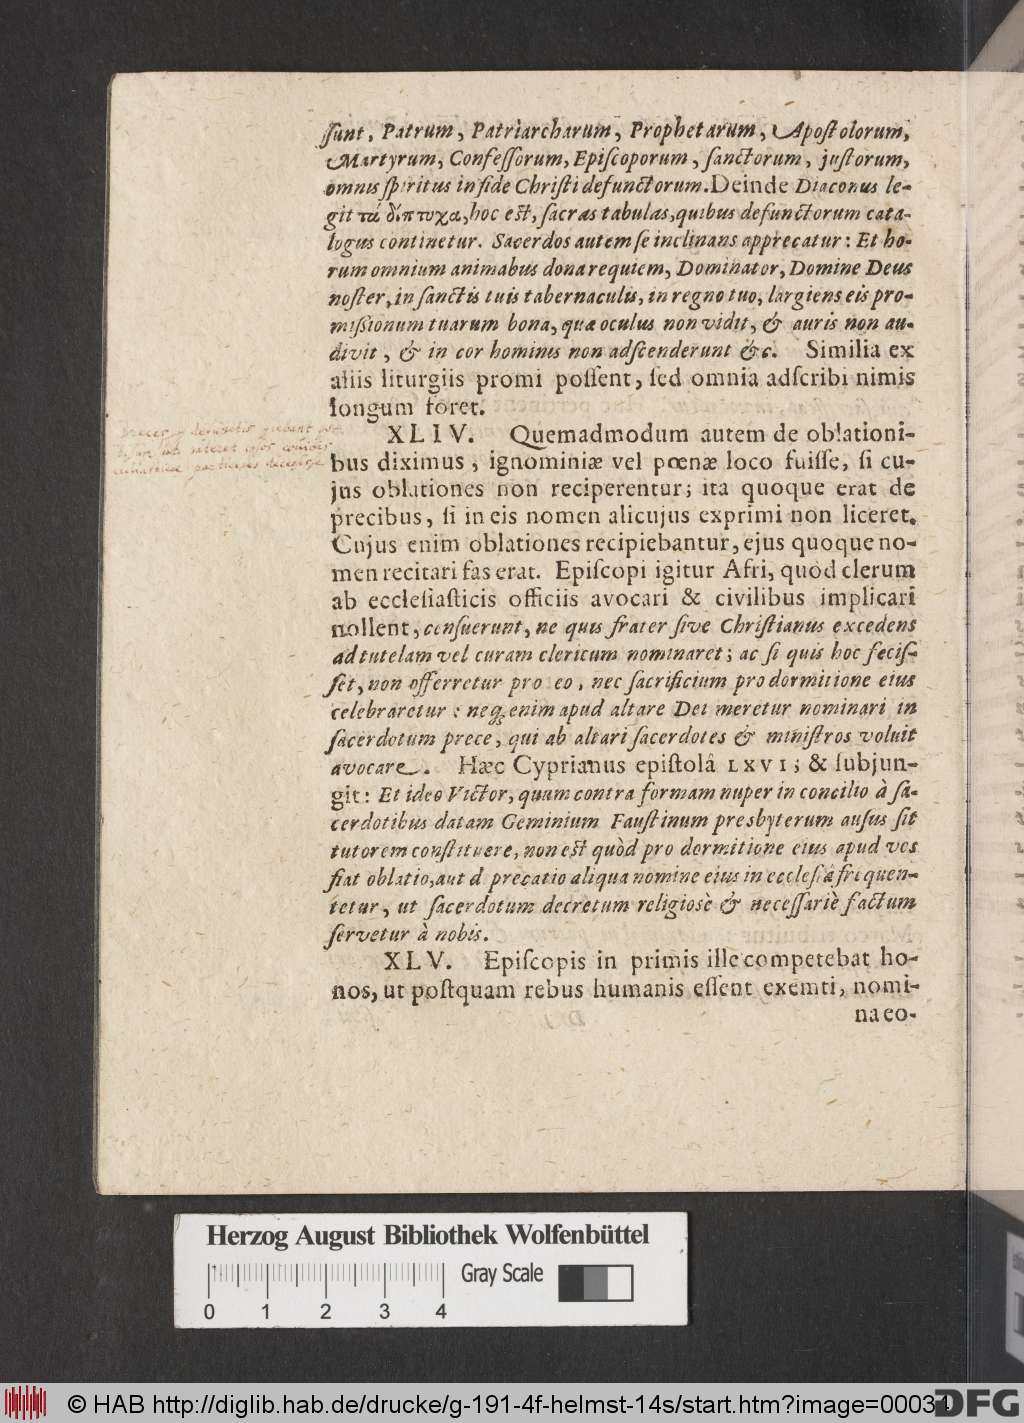 ſunt, Patrum, Patriarcharum, Prophetarum, Apoſtolorum,
Martyrum, Confeſſorum, Epiſcoporum, ſanctorum, juſtorum,
omnis ſpiritus in fide Chriſti defunctorum. Deinde Diaconus le-
git τὰ δίπτυχα, hoc eſt, ſacras tabulas, quibus defunctorum cata-
logus continetur. Sacerdos autem ſe inclinans apprecatur: Et ho-
rum omnium animabus dona requiem, Dominator, Domine Deus
noſter, in ſanctis tuis tabernaculis, in regno tuo, largiens eis pro-
miſsionum tuarum bona, quæ oculus non vidit, & auris non au-
divit, & in cor hominis non adſcenderunt &c. Similia ex
aliis liturgiis promi poſſent, ſed omnia adſcribi nimis
longum foret.
XLIV. Quemadmodum autem de oblationi-
bus diximus, ignominiæ vel pœnæ loco fuiſſe, ſi cu-
jus oblationes non reciperentur; ita quoque erat de
precibus, ſi in eis nomen alicujus exprimi non liceret.
Cujus enim oblationes recipiebantur, ejus quoque no-
men recitari fas erat. Epiſcopi igitur Afri, quòd clerum
ab eccleſiaſticis officiis avocari & civilibus implicari
nollent, cenſuerunt, ne quis frater ſive Chriſtianus excedens
ad tutelam vel curam clericum nominaret; ac ſi quis hoc feciſ-
ſet, non offerretur pro eo, nec ſacrificium pro dormitione eius
celebraretur: neq; enim apud altare Dei meretur nominari in
ſacerdotum prece, qui ab altari ſacerdotes & miniſtros voluit
avocare. Hæc Cyprianus epiſtolâ LXVI; & ſubjun-
git: Et ideo Victor, quum contra formam nuper in concilio à ſa-
cerdotibus datam Geminium Fauſtinum presbyterum auſus ſit
tutorem conſtituere, non eſt quòd pro dormitione eius apud vos
fiat oblatio, aut d precatio aliqua nomine eius in eccleſiâ frequen-
tetur, ut ſacerdotum decretum religiosè & neceſſariè factum
ſervetur à nobis.
XLV. Epiſcopis in primis ille competebat ho-
nos, ut poſtquam rebus humanis eſſent exemti, nomi-
na eo-
Herzog August Bibliothek Wolfenbüttel
Gray Scale
0 1 2 3 4
© HAB http://diglib.hab.de/drucke/g-191-4f-helmst-14s/start.htm?image=00034
DFG